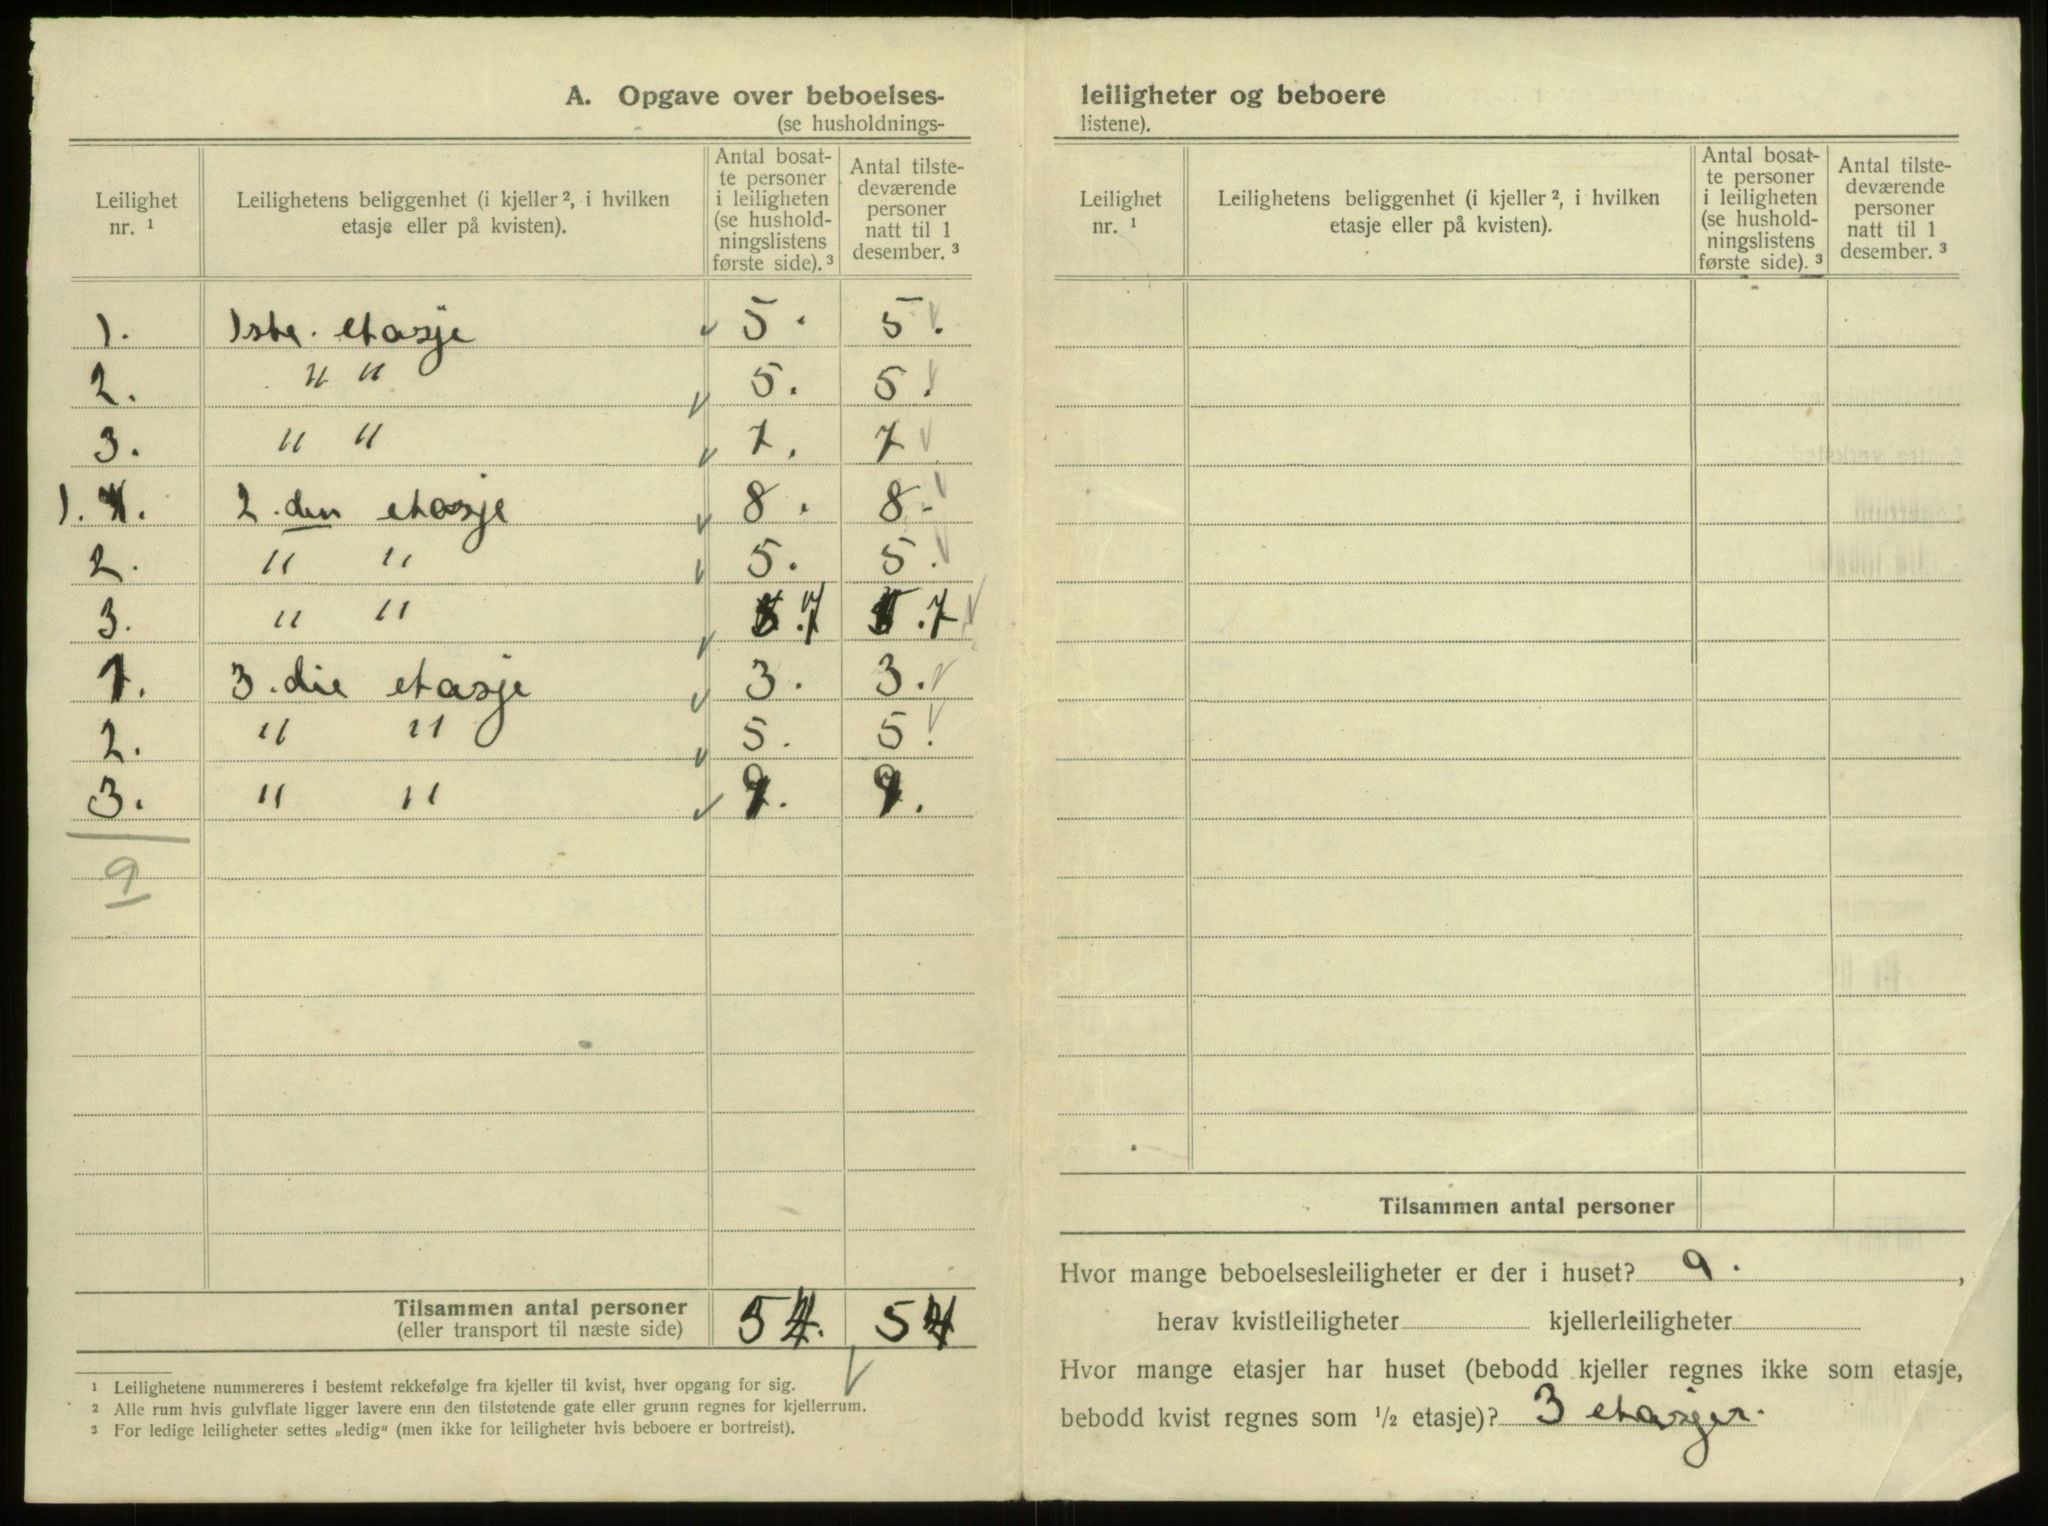 A. Opgave over beboelses-
(se husholdnings-
Leilighet nr. ¹ | Leilighetens beliggenhet (i kjeller ², i hvilken etasje eller på kvisten). | Antal bosatte personer i leiligheten (se husholdningslistens første side). ³ | Antal tilstedeværende personer natt til 1 desember. ³
1. 1ste. etasje √ 5. 5. √
2. " " √ 5. 5. √
3. " " √ 7. 7 √
1. 2.den etasje √ 8. 8. √
2. " " √ 5. 5. √
3. " " √ 7 7 √
1. 3.die etasje √ 3. 3. √
2. " " √ 5. 5. √
3. " " √ 9. 9.
9
Tilsammen antal personer 54. 54
(eller transport til næste side) √
¹ Leilighetene nummereres i bestemt rekkefølge fra kjeller til kvist, hver opgang for sig.
² Alle rum hvis gulvflate ligger lavere enn den tilstøtende gate eller grunn regnes for kjellerrum.
³ For ledige leiligheter settes „ledig" (men ikke for leiligheter hvis beboere er bortreist).
leiligheter og beboere
listene).
Leilighet nr. ¹ | Leilighetens beliggenhet (i kjeller ², i hvilken etasje eller på kvisten). | Antal bosatte personer i leiligheten (se husholdningslistens første side). ³ | Antal tilstedeværende personer natt til 1 desember. ³
Tilsammen antal personer
Hvor mange beboelsesleiligheter er der i huset? 9. ,
herav kvistleiligheter kjellerleiligheter
Hvor mange etasjer har huset (bebodd kjeller regnes ikke som etasje,
bebodd kvist regnes som ½ etasje)? 3 etasjer.